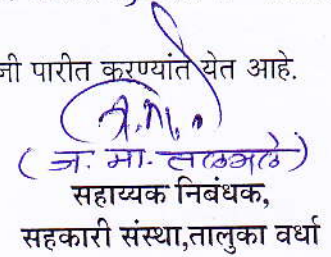 जी पारीत करण्यांत येत आहे.
( ज. मा. तळमले )
सहाय्यक निबंधक,
सहकारी संस्था,तालुका वर्धा